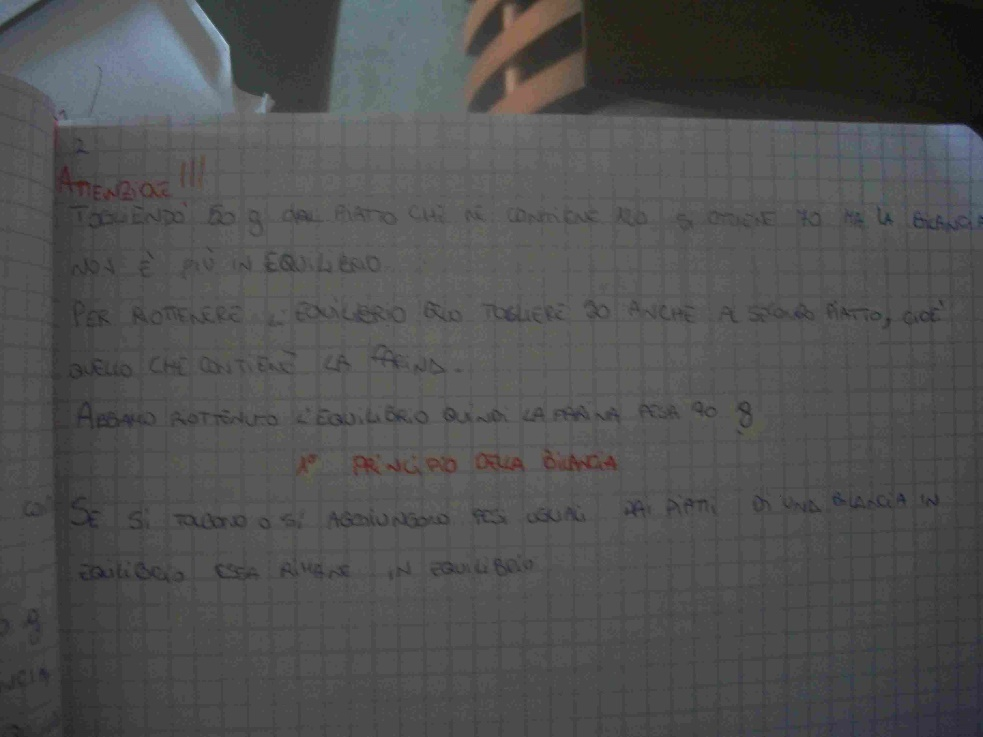 2
ATTENZIONE!!!
TOGLIENDO 50 g DAL PIATTO CHE NE CONTIENE 120 SI OTTIENE 70 MA LA BILANCIA
NON È PIÙ IN EQUILIBRIO
PER RIOTTENERE L'EQUILIBRIO TOGLIERE ANCHE AL SECONDO PIATTO, CIOÈ
QUELLO CHE CONTIENE LA FARINA.
ABBIAMO RIOTTENUTO L'EQUILIBRIO QUINDI LA FARINA PESA 70 g
1° PRINCIPIO DELLA BILANCIA
SE SI TOLGONO O SI AGGIUNGONO PESI UGUALI DAI PIATTI DI UNA BILANCIA IN
EQUILIBRIO ESSA RIMANE IN EQUILIBRIO